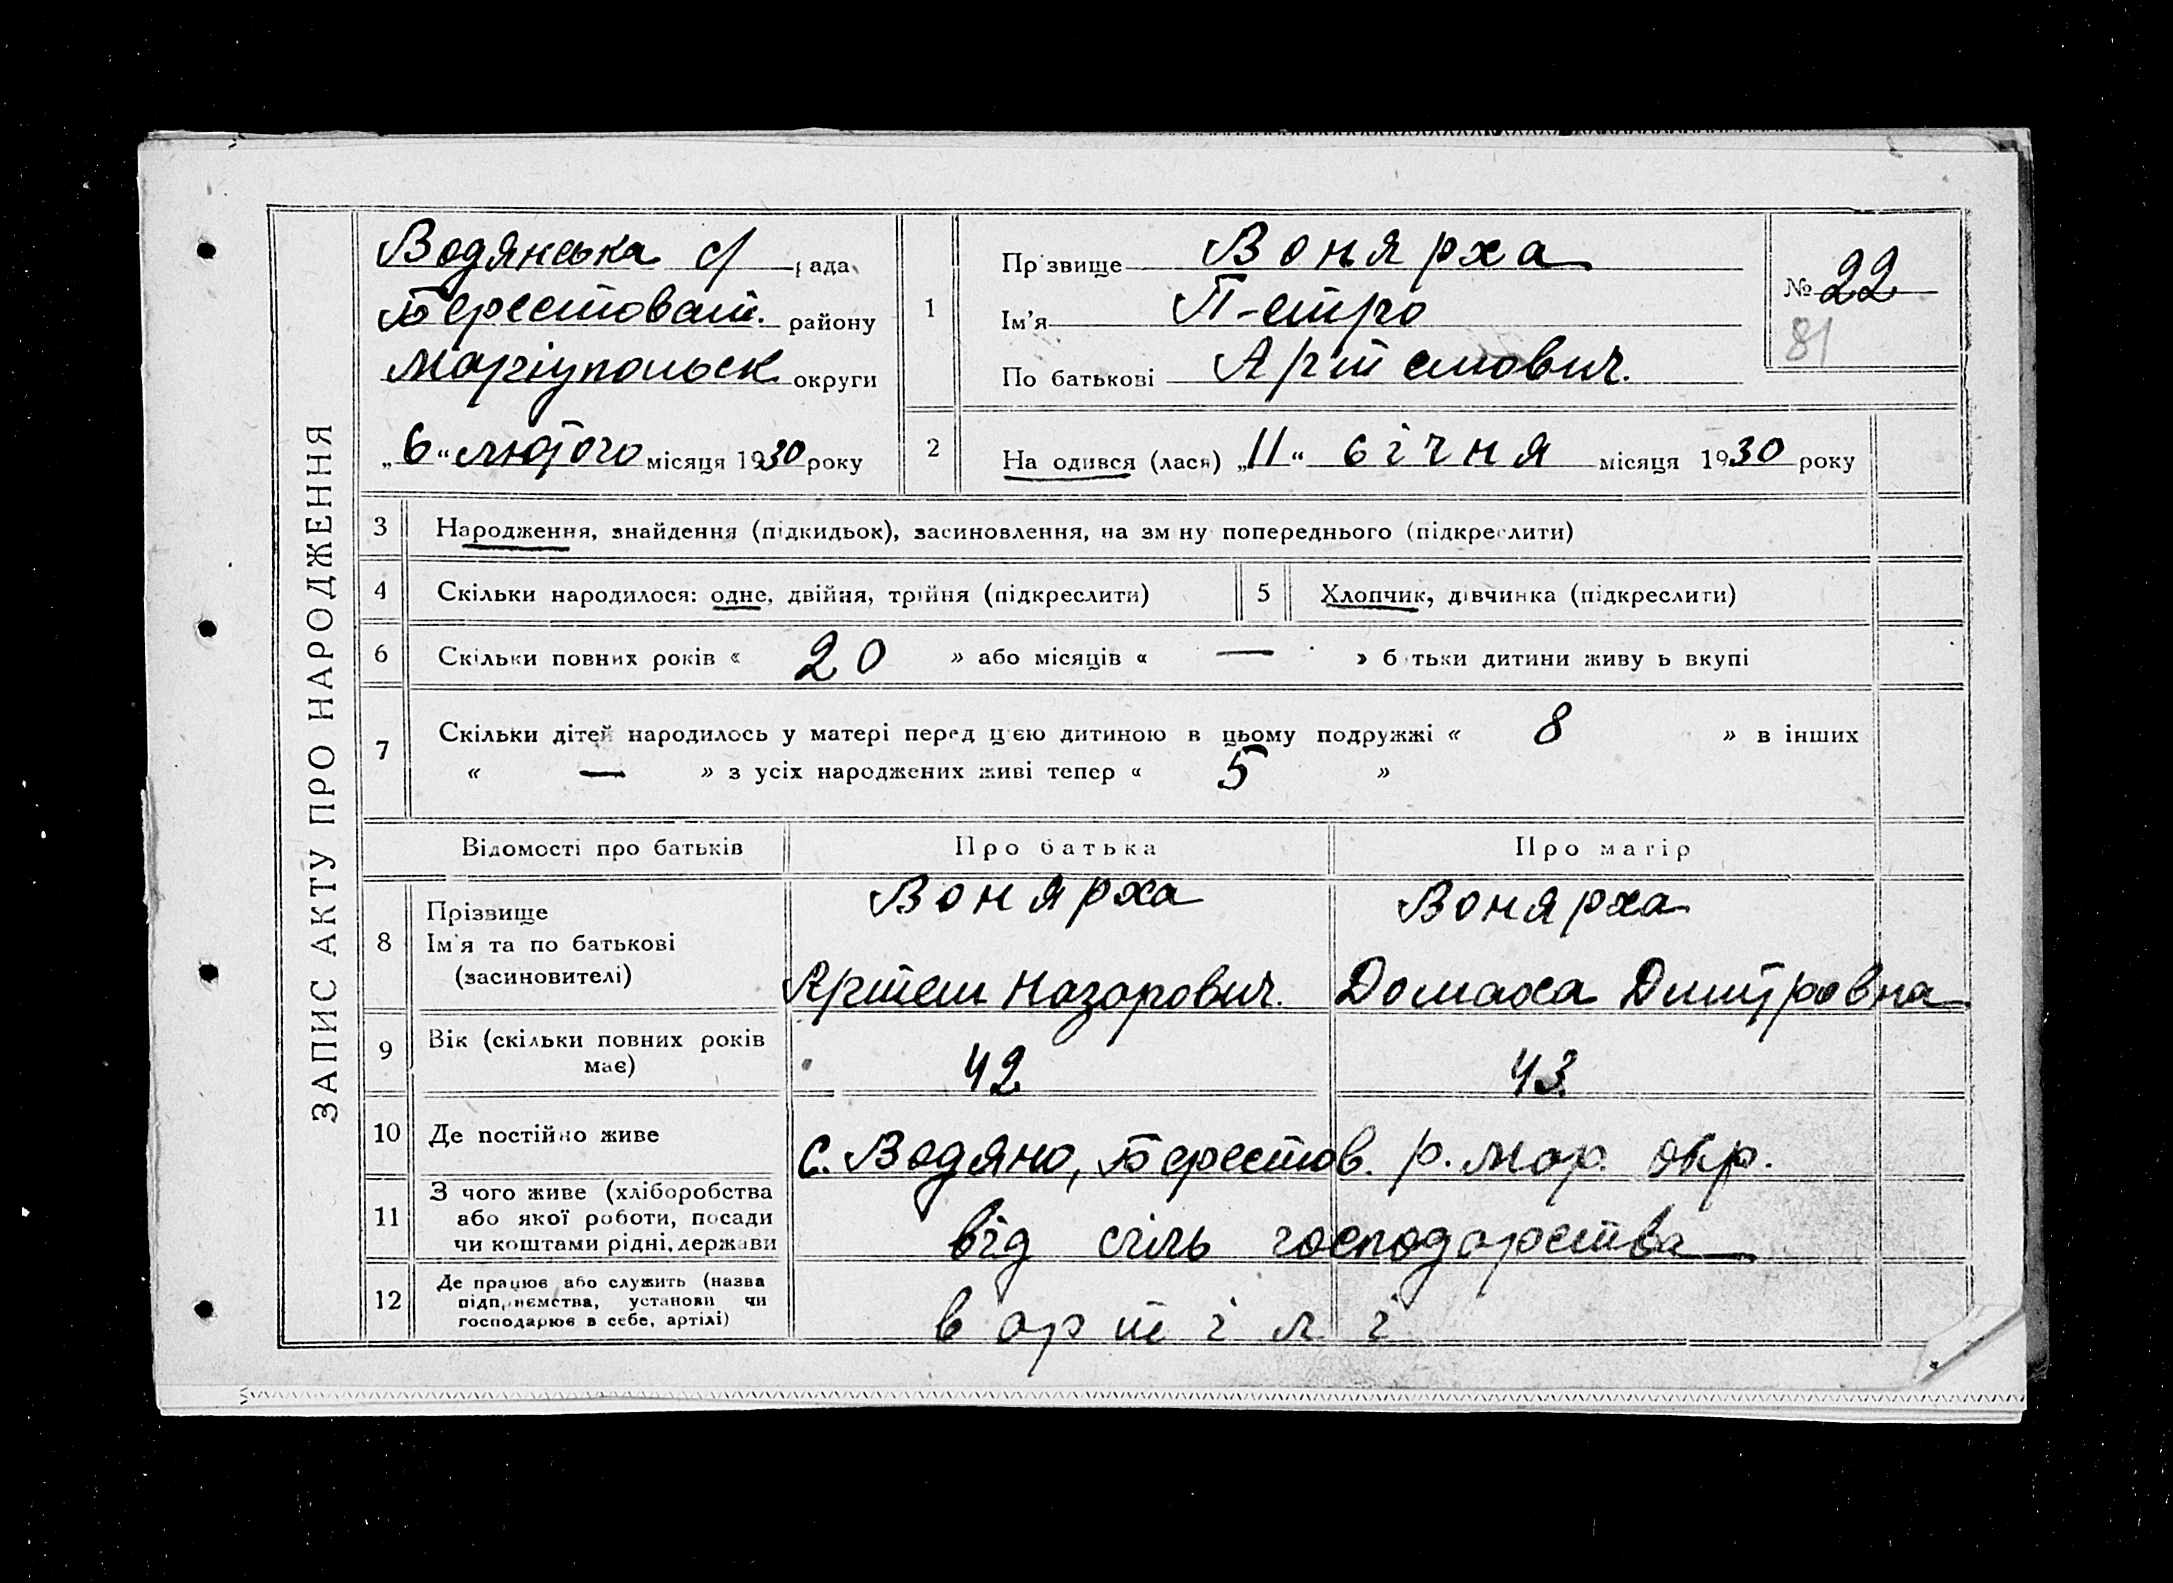 ЗАПИС АКТУ ПРО НАРОДЖЕННЯ
Водянська с/ рада
Берестоват. району
Маріупольск округи
„6“ лютого місяця 1930 року
1
Прізвище Вонярха
Ім'я П-етро
По батькові Артемович.
№ 22
81
2
Народився (лася) „11“ січня місяця 1930 року
3 Народження, знайдення (підкидьок), засиновлення, на зміну попереднього (підкреслити)
4 Скільки народилося: одне, двійня, трійня (підкреслити)
5 Хлопчик, дівчинка (підкреслити)
6 Скільки повних років « 20 » або місяців « — » батьки дитини живуть вкупі
7 Скільки дітей народилось у матері перед цією дитиною в цьому подружжі « 8 » в інших
« — » з усіх народжених живі тепер « 5 »
Відомості про батьків Про батька Про матір
8 Прізвище
Ім'я та по батькові
(засиновителі)
Вонярха Вонярха
Артем Назарович. Домаха Дмитровна
9 Вік (скільки повних років
має)
42 43
10 Де постійно живе
с. Водяно, Берестов. р. Мар. окр.
11 З чого живе (хліборобства
або якої роботи, посади
чи коштами рідні, держави
від сіль господарства
12 Де працює або служить (назва
підприємства, установи чи
господарює в себе, артілі)
в артілі